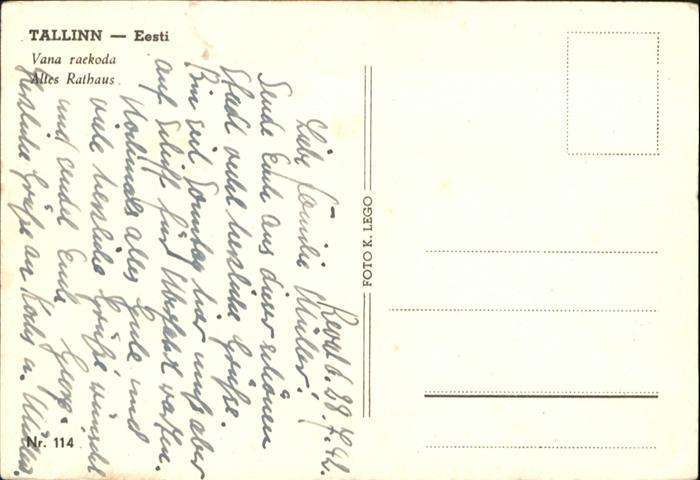 TALLINN — Eesti
Vana raekoda
Altes Rathaus
FOTO K. LEGO
Nr. 114
Reval d. 28. 7. 42.
Liebe Familie Müller!
Sende Euch aus dieser schönen
Stadt recht herzliche Grüße.
Bin seit Sonntag hier muß aber
auf Schiff für Überfahrt warten.
Nochmals alles Gute und
viele herzliche Grüße wünscht
und sendet Euch Georg.
Herzliche Grüße an